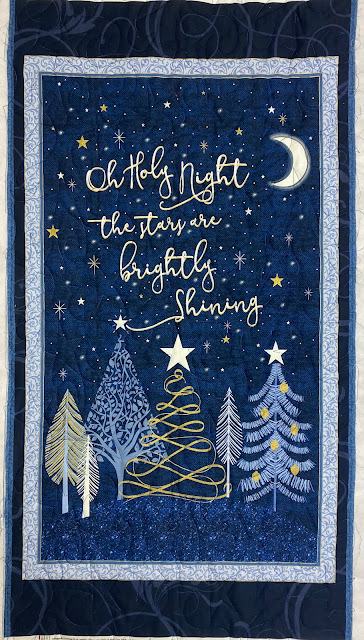 Oh Holy Night
the stars are
brightly
Shining